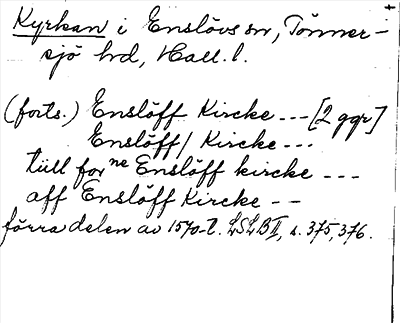 Kyrkan i Enslövs sn, Tönner-
sjö hrd, Hall. l.
(forts.) Enslöff Kircke --- [2 ggr]
Enslöff/ Kircke ---
tiill for ne Enslöff kircke ---
aff Enslöff Kircke --
förra delen av 1570-t. LSLB II, s. 375, 376.